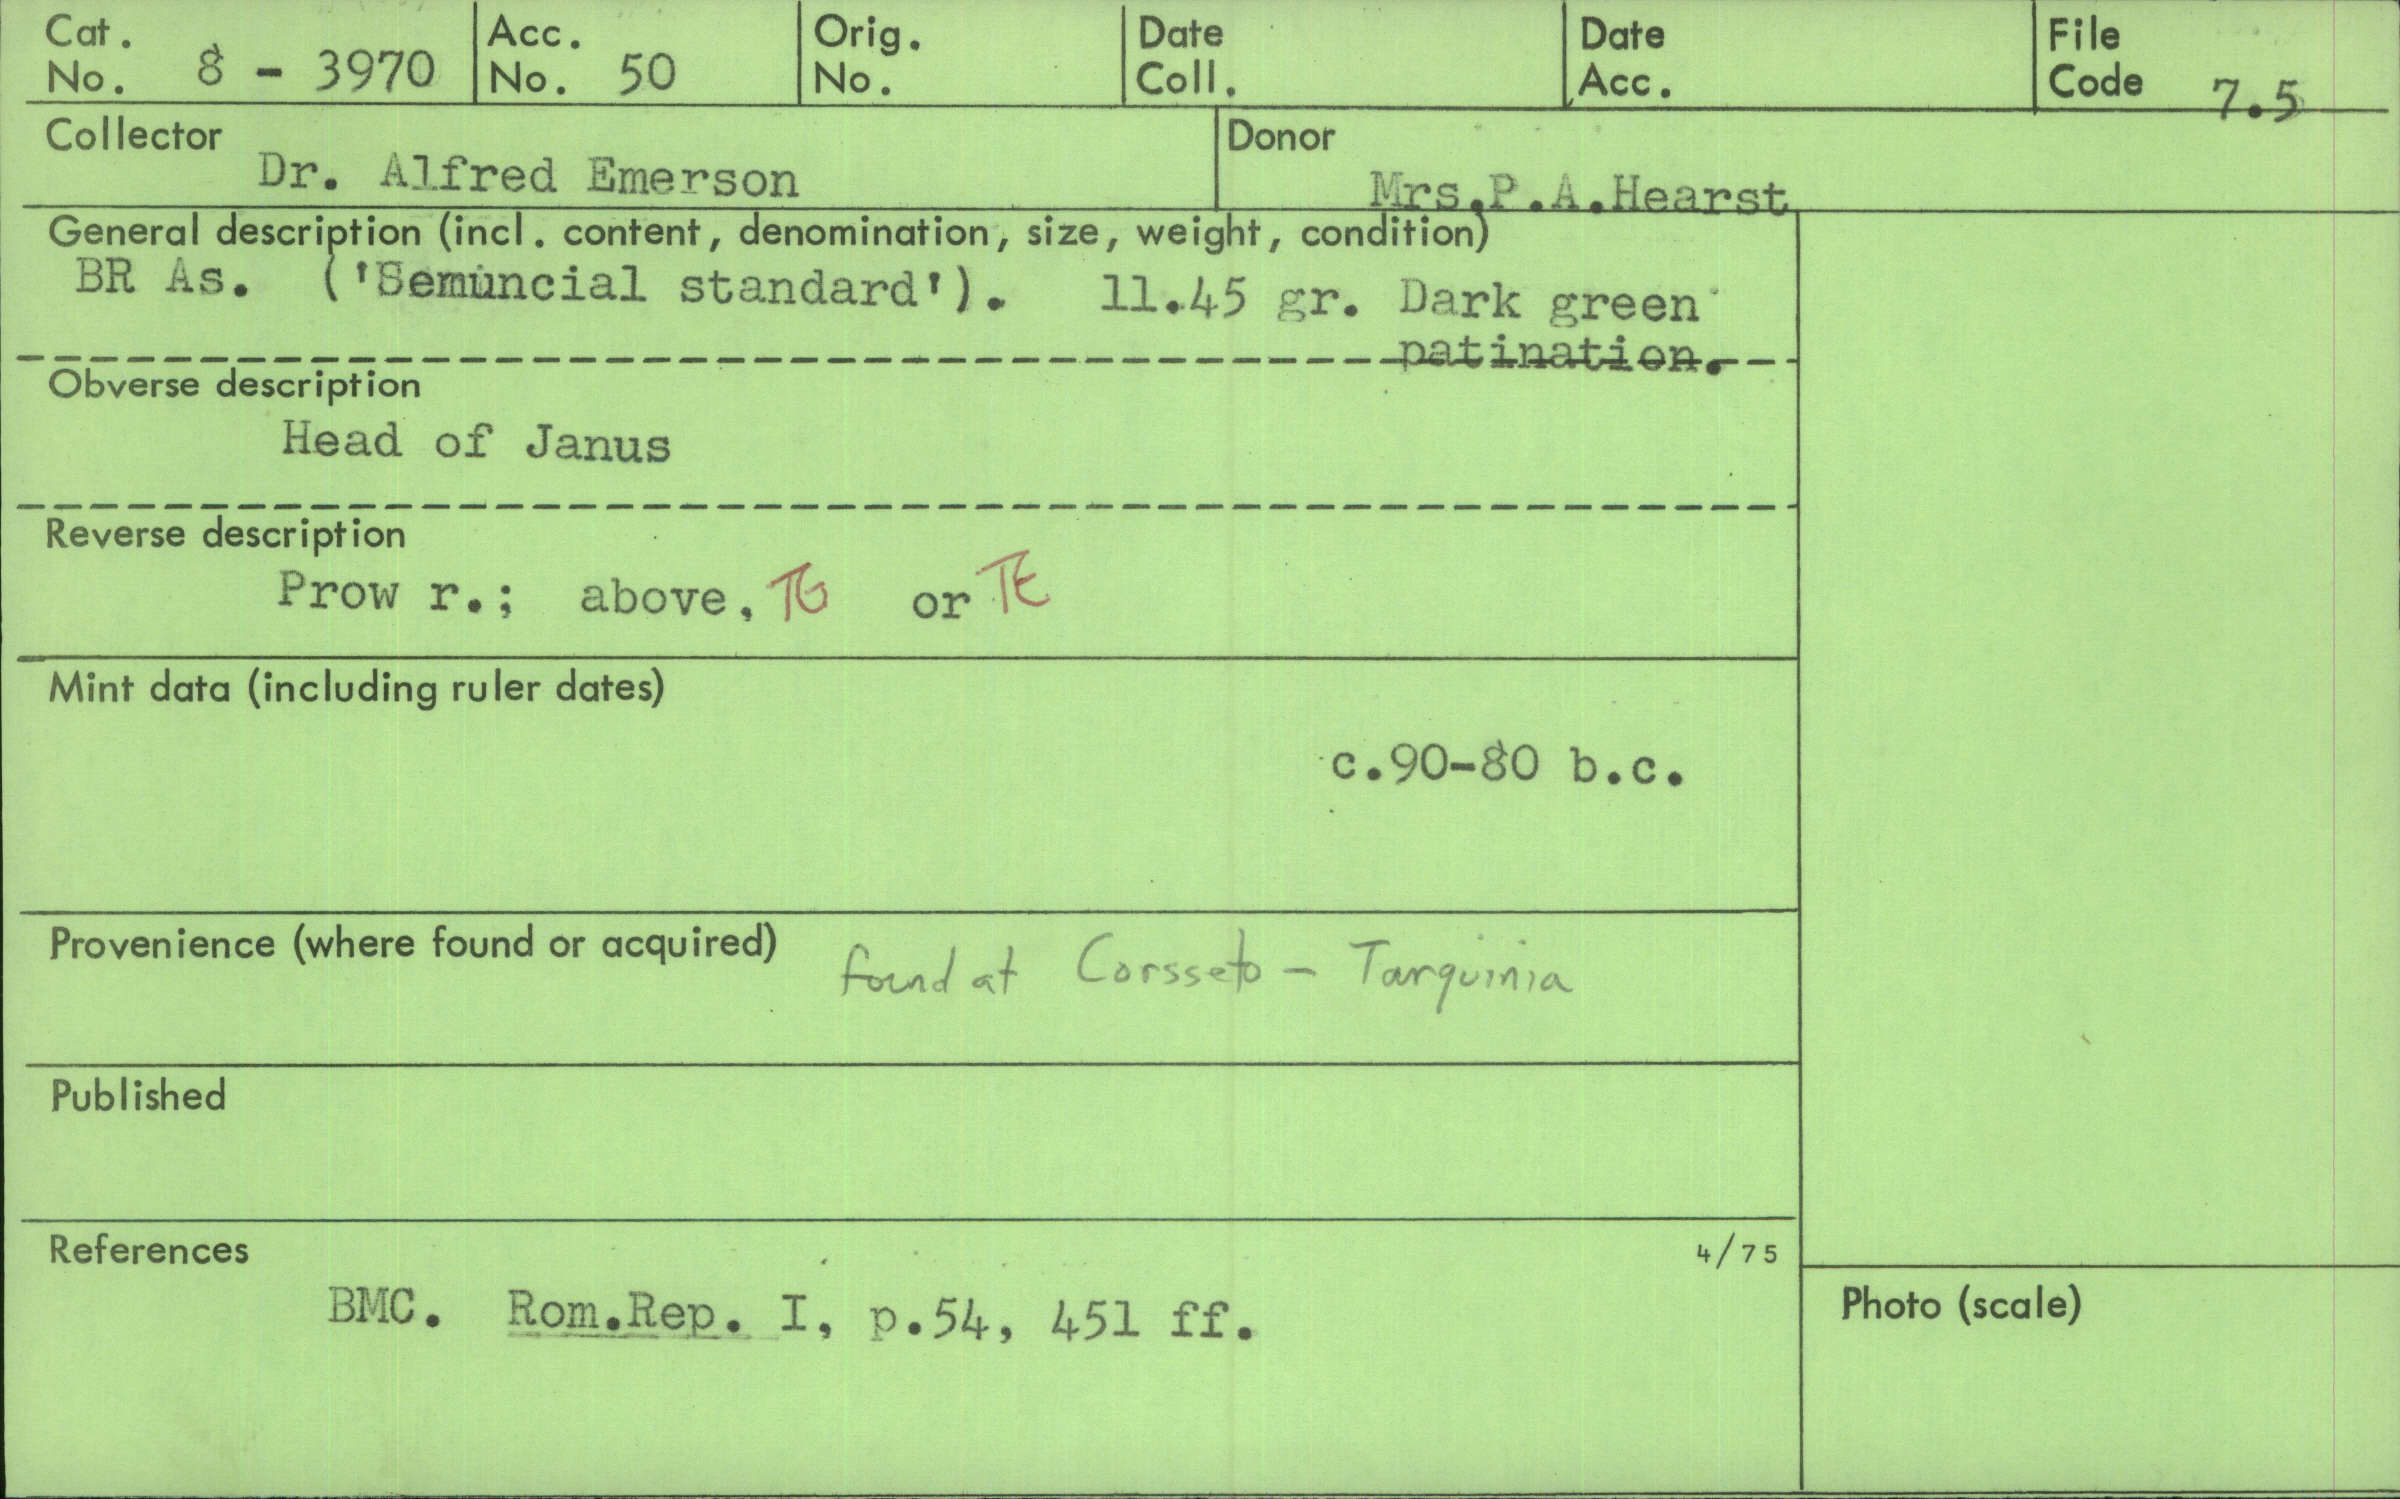 Cat. No. 8 - 3970
Acc. No. 50
Orig. No.
Date Coll.
Date Acc.
File Code 7.5
Collector
Dr. Alfred Emerson
Donor
Mrs.P.A.Hearst
General description (incl. content, denomination, size, weight, condition)
BR As. ('Semuncial standard'). 11.45 gr. Dark green
patination.
Obverse description
Head of Janus
Reverse description
Prow r.; above, or
Mint data (including ruler dates)
c.90-80 b.c.
Provenience (where found or acquired) found at Corsseto - Tarquinia
Published
References
4/75
BMC. Rom.Rep. I, p.54, 451 ff.
Photo (scale)